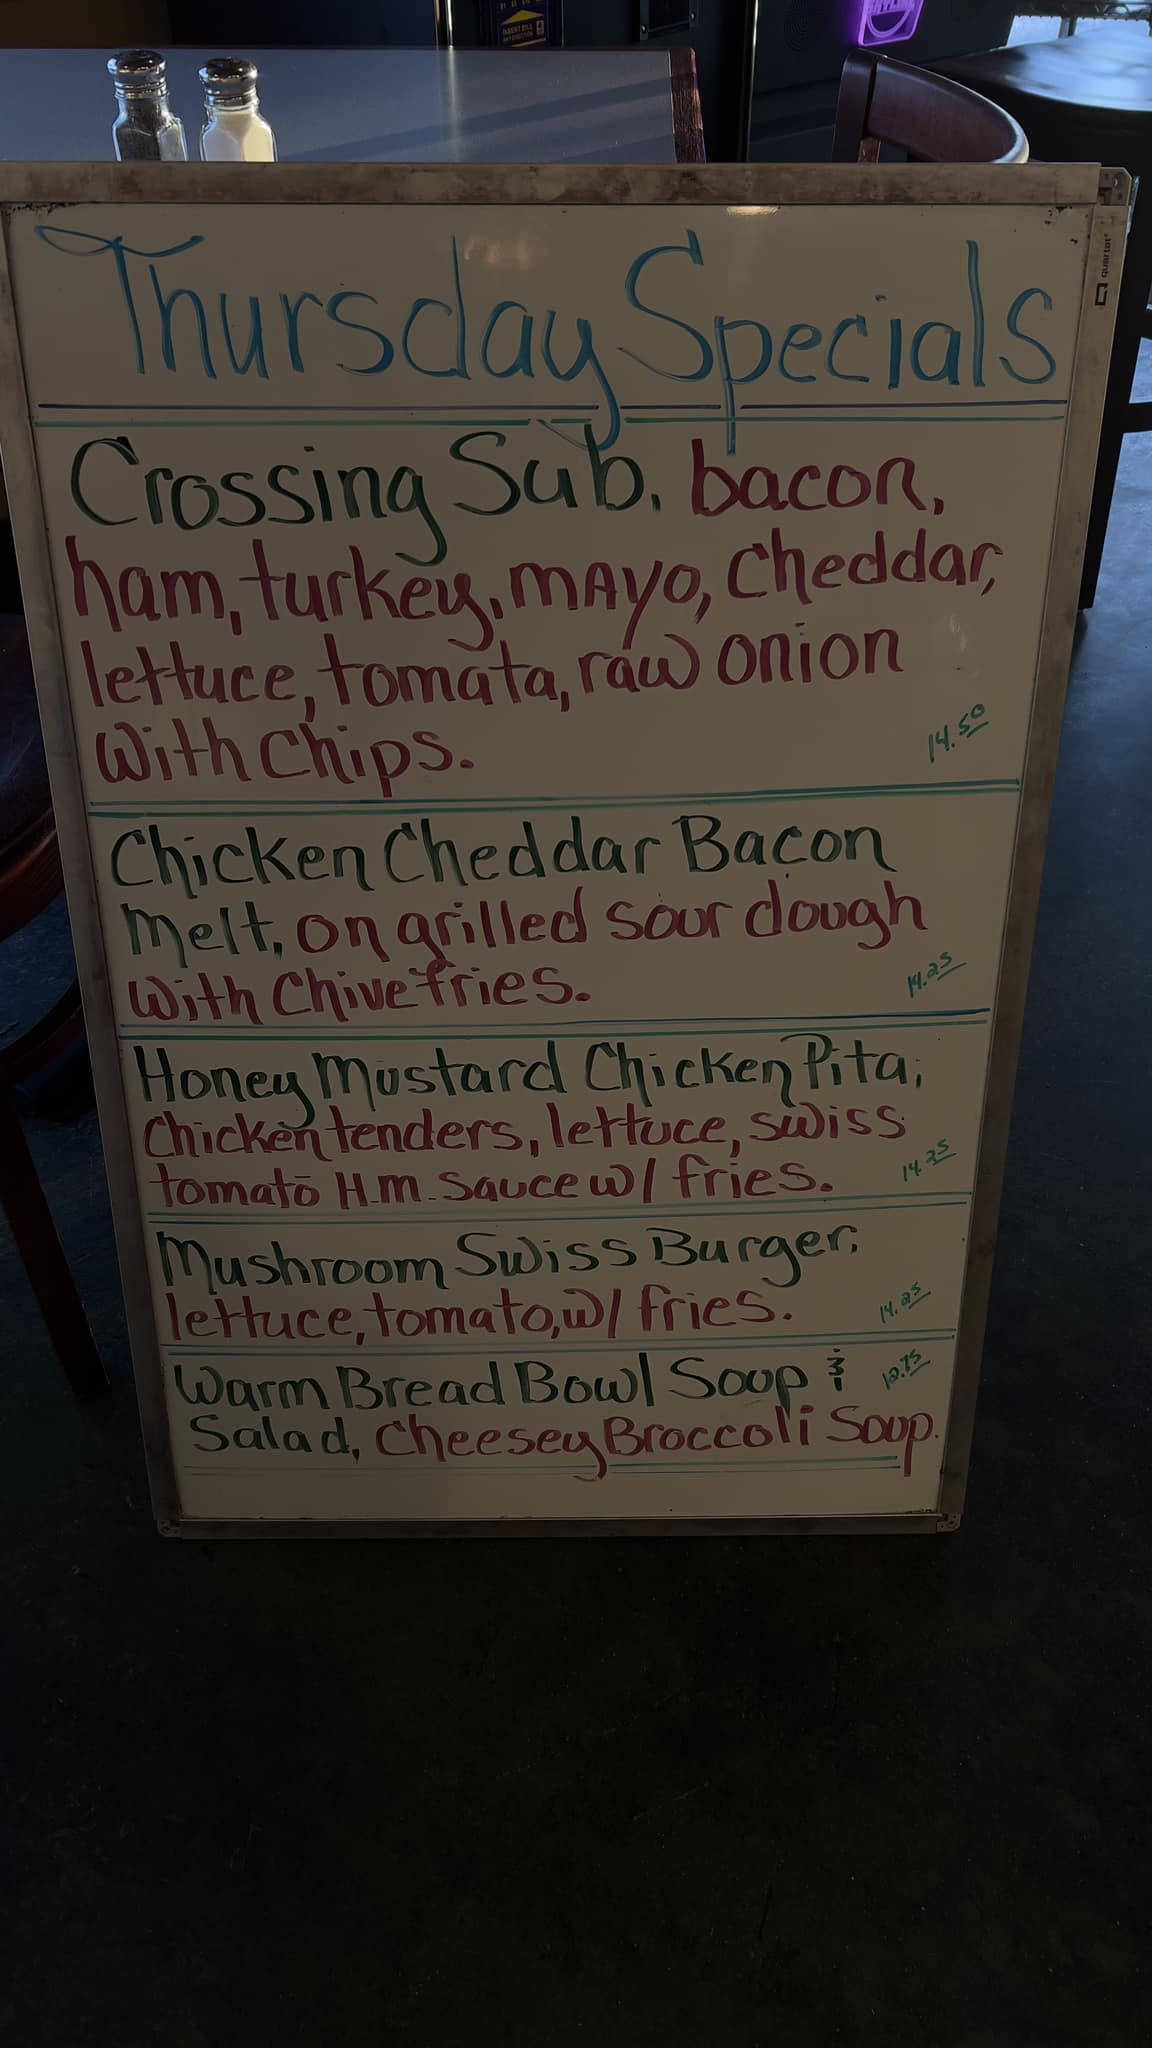 INSERT BILL
ANY DIRECTION
SKYLINE
quartet
Thursday Specials
Crossing Sub, bacon,
ham, turkey, mAyo, Cheddar,
lettuce, tomata, raw onion
With Chips.
14.50
Chicken Cheddar Bacon
Melt, on grilled sour dough
With Chive fries.
14.25
Honey Mustard Chicken Pita;
Chicken tenders, lettuce, swiss
tomato H.m. Sauce w/ fries.
14.25
Mushroom Swiss Burger,
lettuce, tomato, w/ fries.
14.25
Warm Bread Bowl Soup &
12.75
Salad, Cheesey Broccoli Soup.